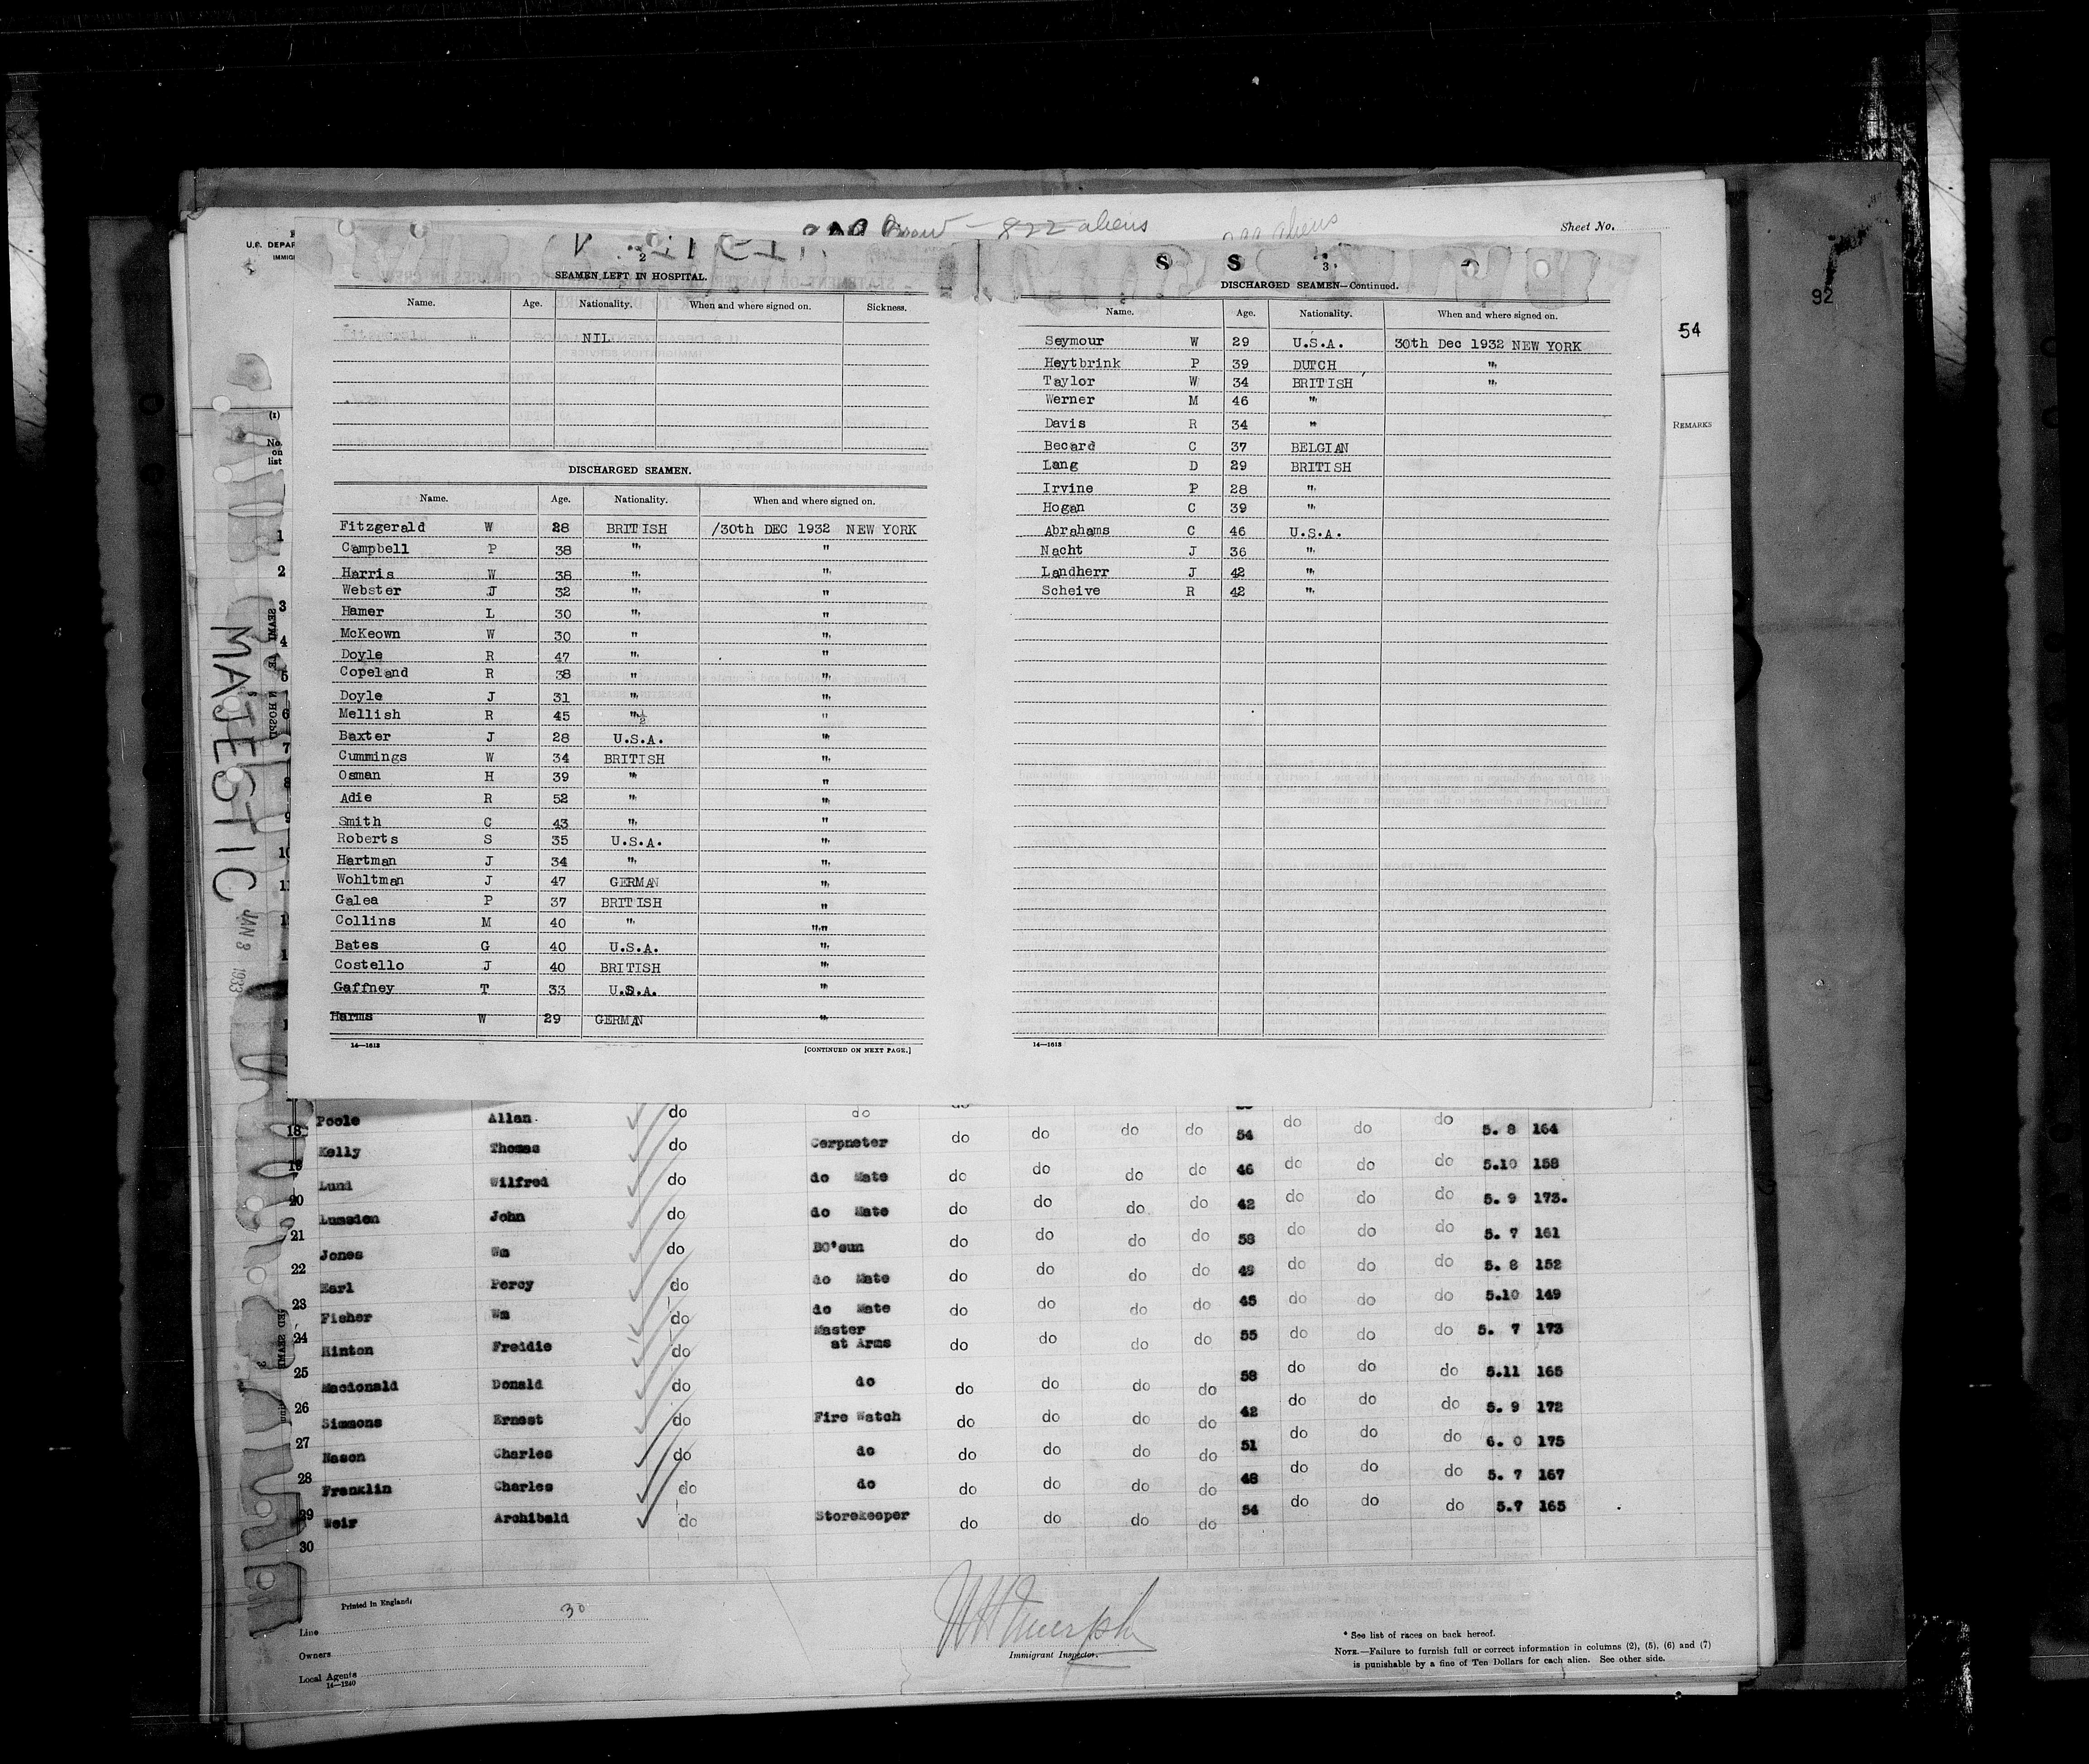 Crew - 822 aliens
Sheet No.
U.S. DEPAR
IMMIG
92
54
REMARKS
(1)
No. on list
MAJESTIC JAN 3 1933
2
SEAMEN LEFT IN HOSPITAL.
Name. Age. Nationality. When and where signed on. Sickness.
NIL
DISCHARGED SEAMEN.
Name. Age. Nationality. When and where signed on.
Fitzgerald W 28 BRITISH /30th DEC 1932 NEW YORK
Campbell P 38 " "
Harris W 38 " "
Webster J 32 " "
Hamer L 30 " "
McKeown W 30 " "
Doyle R 47 " "
Copeland R 38 " "
Doyle J 31 " "
Mellish R 45 " "
Baxter J 28 U.S.A. "
Cummings W 34 BRITISH "
Osman H 39 " "
Adie R 52 " "
Smith C 43 " "
Roberts S 35 U.S.A. "
Hartman J 34 " "
Wohltman J 47 GERMAN "
Galea P 37 BRITISH "
Collins M 40 " "
Bates G 40 U.S.A. "
Costello J 40 BRITISH "
Gaffney T 33 U.S.A. "
Harms W 29 GERMAN "
14—1613 [CONTINUED ON NEXT PAGE.]
S S
3
DISCHARGED SEAMEN—Continued.
Name. Age. Nationality. When and where signed on.
Seymour W 29 U.S.A. 30th Dec 1932 NEW YORK
Heytbrink P 39 DUTCH "
Taylor W 34 BRITISH "
Werner M 46 "
Davis R 34 "
Becard C 37 BELGIAN
Lang D 29 BRITISH
Irvine P 28 "
Hogan C 39 "
Abrahams C 46 U.S.A.
Nacht J 36 "
Landherr J 42 "
Scheive R 42 "
14—1613
1
2
3
4
5
6
7
8
9
10
11
Poole Allan do do do do do
18 Kelly Thomas do Carpneter do do do do 54 do do do 5. 8 164
19 Lund Wilfred do do Mate do do do do 46 do do do 5.10 158
20 Lumsden John do do Mate do do do do 42 do do do 5. 9 173.
21 Jones Wm do BO'sun do do do do 58 do do do 5. 7 161
22 Earl Percy do do Mate do do do do 45 do do do 5. 8 152
23 Fisher Wm do do Mate do do do do 45 do do do 5.10 149
24 Hinton Freddie do Master at Arms do do do do 55 do do do 5. 7 173
25 Macdonald Donald do do do do do do 58 do do do 5.11 165
26 Simmons Ernest do Fire Watch do do do do 42 do do do 5. 9 172
27 Nason Charles do do do do do do 51 do do do 6. 0 175
28 Franklin Charles do do do do do do 48 do do do 5. 7 167
29 Weir Archibald do Storekeeper do do do do 54 do do do 5.7 165
30
Printed in England.
30
Line
Owners
Local Agents
14—1240
Immigrant Inspector.
* See list of races on back hereof.
NOTE.—Failure to furnish full or correct information in columns (2), (5), (6) and (7)
is punishable by a fine of Ten Dollars for each alien. See other side.